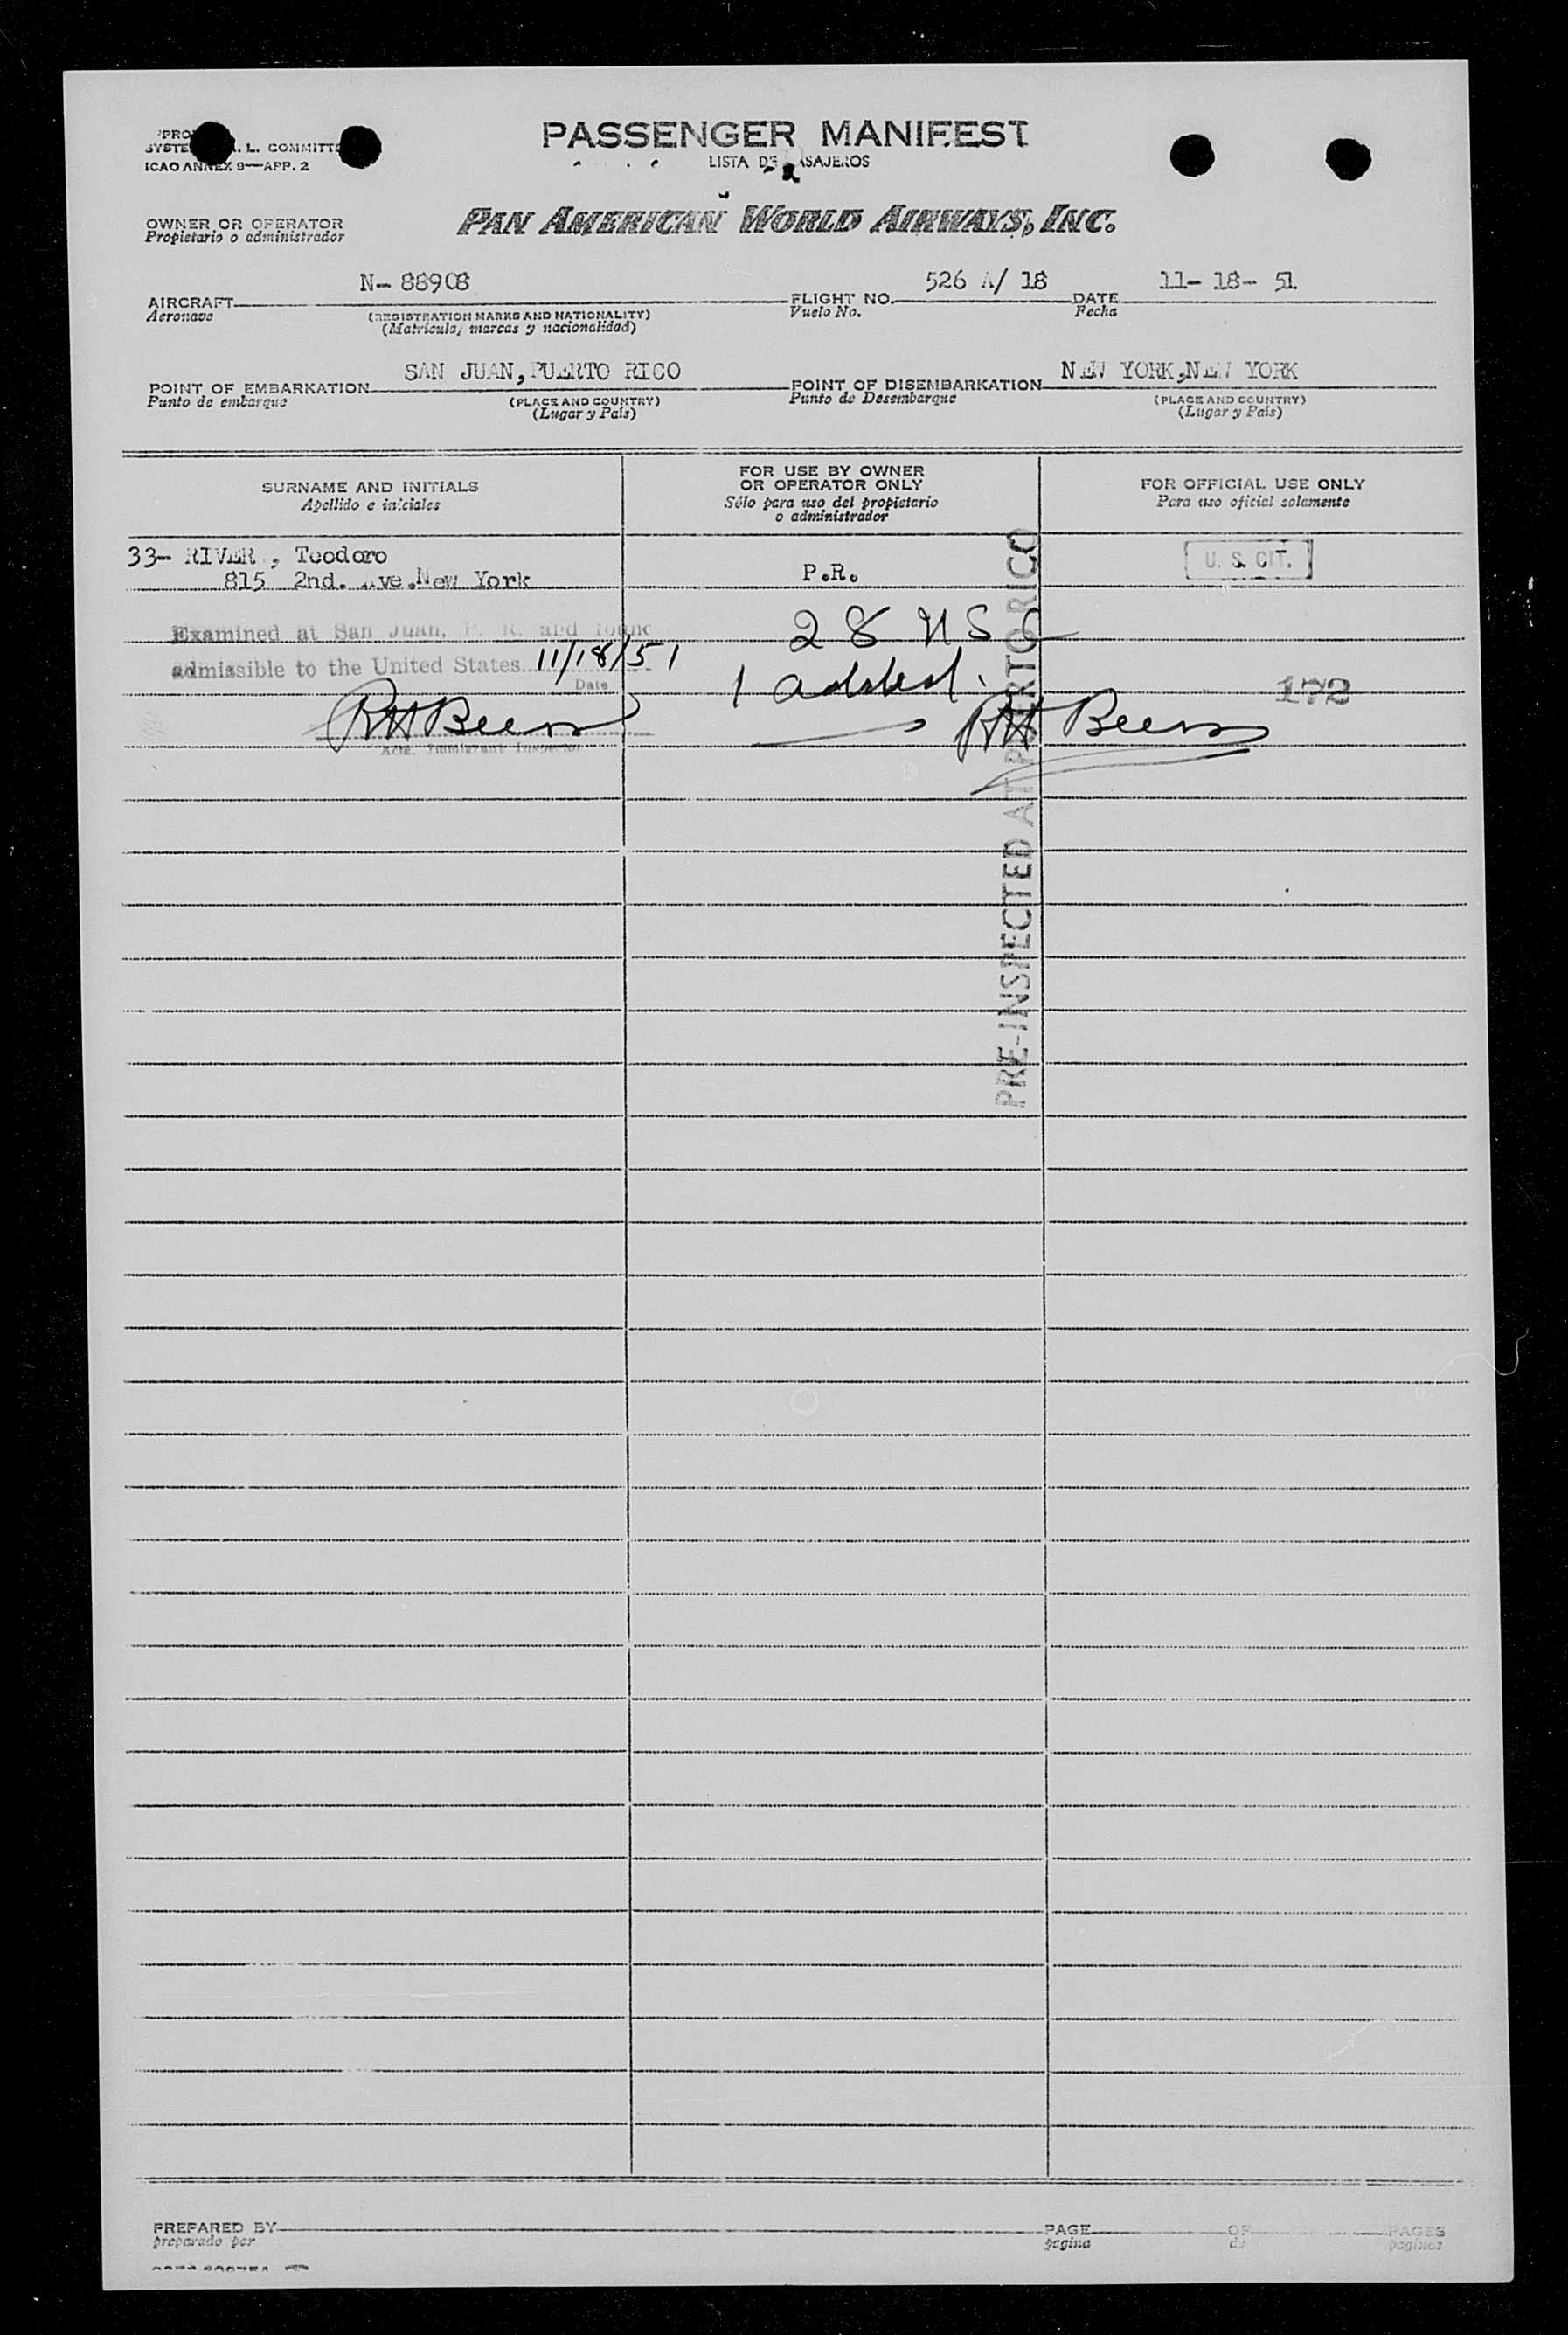 PASSENGER MANIFEST
L. COMMITTE
LISTA DE
ICAO ANNEX 9—APP. 2
OWNER OR OPERATOR
Propietario o administrador
PAN AMERICAN WORLD AIRWAYS, INC.
N-88908 526 A/ 18 11-18-51
AIRCRAFT FLIGHT NO. DATE
Aeronave (REGISTRATION MARKS AND NATIONALITY) Vuelo No. Fecha
(Matricula, marcas y nacionalidad)
SAN JUAN, PUERTO RICO NEW YORK, NEW YORK
POINT OF EMBARKATION POINT OF DISEMBARKATION
Punto de embarque (PLACE AND COUNTRY) Punto de Desembarque (PLACE AND COUNTRY)
(Lugar y País) (Lugar y País)
SURNAME AND INITIALS
Apellido e iniciales
FOR USE BY OWNER
OR OPERATOR ONLY
Sólo para uso del propietario
o administrador
FOR OFFICIAL USE ONLY
Para uso oficial solamente
33- RIVER , Teodoro
815 2nd. Ave.New York
P.R.
U. S. CIT.
Examined at San Juan, P. R. and found
admissible to the United States 11/18/51
Date
28 US
1 added.
172
RH Beers
RH Beers
Immigrant Inspector
PRE-INSPECTED AT PUERTO RICO
PREPARED BY PAGE OF PAGES
preparado por pagina de paginas